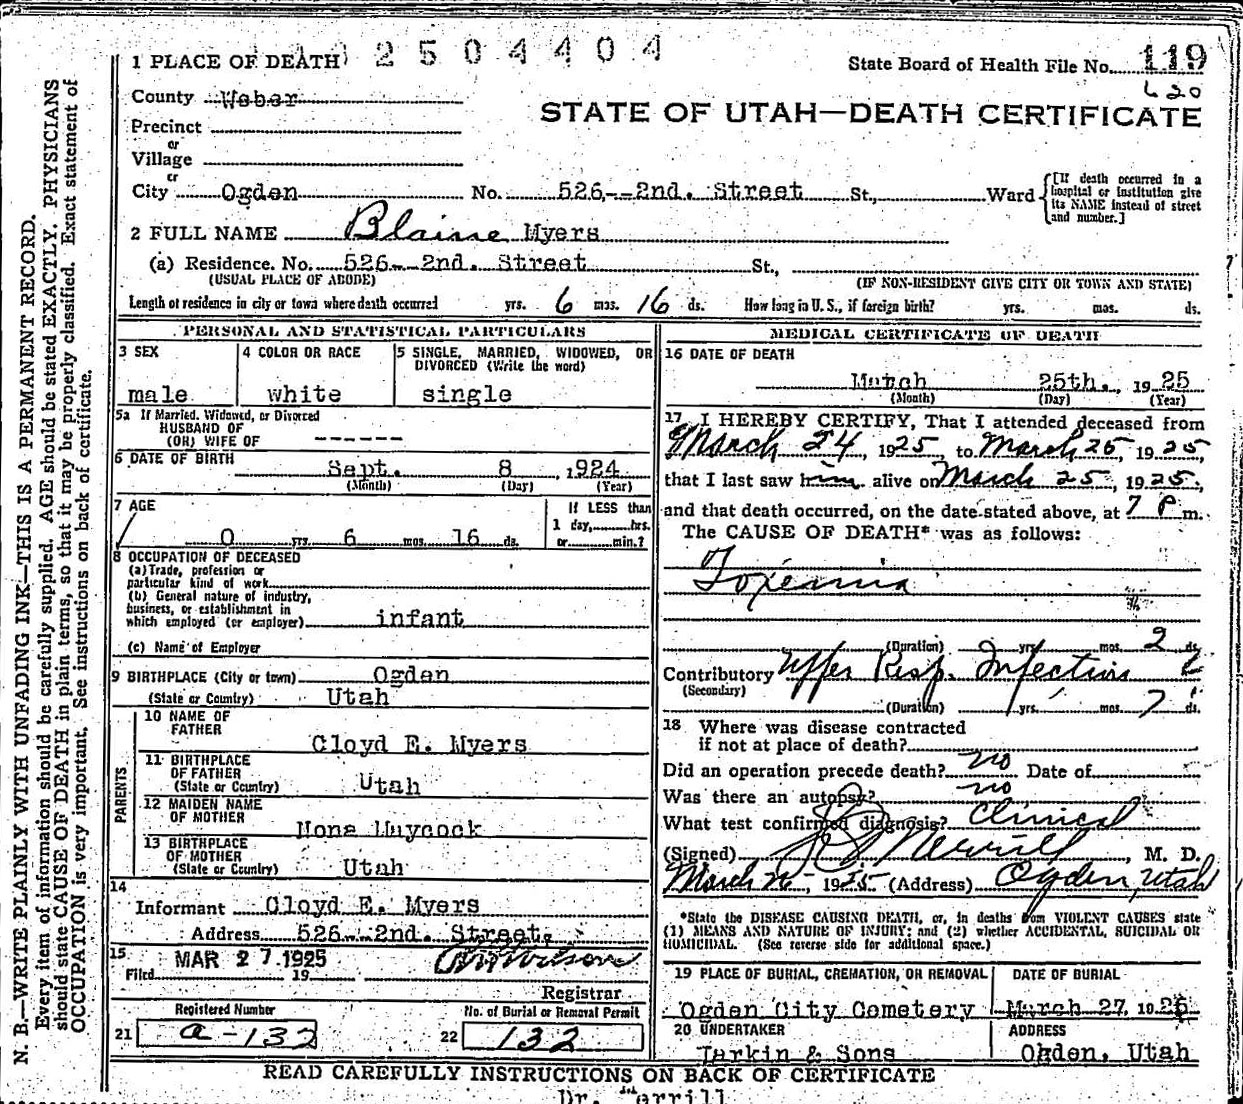 2504404
1 PLACE OF DEATH
State Board of Health File No. 119
620
County Weber
STATE OF UTAH—DEATH CERTIFICATE
Precinct
or
Village
or
City Ogden No. 526--2nd. Street St., Ward
[If death occurred in a hospital or institution give its NAME instead of street and number.]
2 FULL NAME Blaine Myers
(a) Residence. No. 526--2nd. Street St.,
(USUAL PLACE OF ABODE) (IF NON-RESIDENT GIVE CITY OR TOWN AND STATE)
Length of residence in city or town where death occurred yrs. 6 mos. 16 ds. How long in U. S., if foreign birth? yrs. mos. ds.
PERSONAL AND STATISTICAL PARTICULARS
3 SEX
male
4 COLOR OR RACE
white
5 SINGLE, MARRIED, WIDOWED, OR
DIVORCED (Write the word)
single
5a If Married, Widowed, or Divorced
HUSBAND OF
(OR) WIFE OF ------
6 DATE OF BIRTH Sept. 8 , 1924
(Month) (Day) (Year)
7 AGE
0 yrs. 6 mos. 16 ds.
If LESS than
1 day, hrs.
or min.?
8 OCCUPATION OF DECEASED
(a) Trade, profession or
particular kind of work
(b) General nature of industry,
business, or establishment in
which employed (or employer) infant
(c) Name of Employer
9 BIRTHPLACE (City or town) Ogden
(State or Country) Utah
PARENTS
10 NAME OF
FATHER
Cloyd E. Myers
11 BIRTHPLACE
OF FATHER
(State or Country) Utah
12 MAIDEN NAME
OF MOTHER
Mona Maycock
13 BIRTHPLACE
OF MOTHER
(State or Country) Utah
14
Informant Cloyd E. Myers
Address 526--2nd. Street.
15
Filed MAR 27 1925 19
Registrar
Registered Number
21 a-132
No. of Burial or Removal Permit
22 132
MEDICAL CERTIFICATE OF DEATH
16 DATE OF DEATH
March 25th., 1925
(Month) (Day) (Year)
17 I HEREBY CERTIFY, That I attended deceased from
March 24, 1925, to March 25, 1925,
that I last saw him alive on March 25, 1925,
and that death occurred, on the date stated above, at 7 P m.
The CAUSE OF DEATH* was as follows:
Toxemia
(Duration) yrs. mos. 2 ds.
Contributory Upper Resp. Infection
(Secondary)
(Duration) yrs. mos. 7 ds.
18 Where was disease contracted
if not at place of death?
Did an operation precede death? no Date of
Was there an autopsy? no
What test confirmed diagnosis? Clinical
(Signed) Merrill, M. D.
March 26, 1925 (Address) Ogden, Utah
*State the DISEASE CAUSING DEATH, or, in deaths from VIOLENT CAUSES state
(1) MEANS AND NATURE OF INJURY; and (2) whether ACCIDENTAL, SUICIDAL OR
HOMICIDAL. (See reverse side for additional space.)
19 PLACE OF BURIAL, CREMATION, OR REMOVAL
Ogden City Cemetery
DATE OF BURIAL
March 27, 1925
20 UNDERTAKER
Larkin & Sons
ADDRESS
Ogden, Utah
READ CAREFULLY INSTRUCTIONS ON BACK OF CERTIFICATE
Dr. Merrill
N. B.—WRITE PLAINLY WITH UNFADING INK—THIS IS A PERMANENT RECORD.
Every item of information should be carefully supplied. AGE should be stated EXACTLY. PHYSICIANS
should state CAUSE OF DEATH in plain terms, so that it may be properly classified. Exact statement of
OCCUPATION is very important. See instructions on back of certificate.